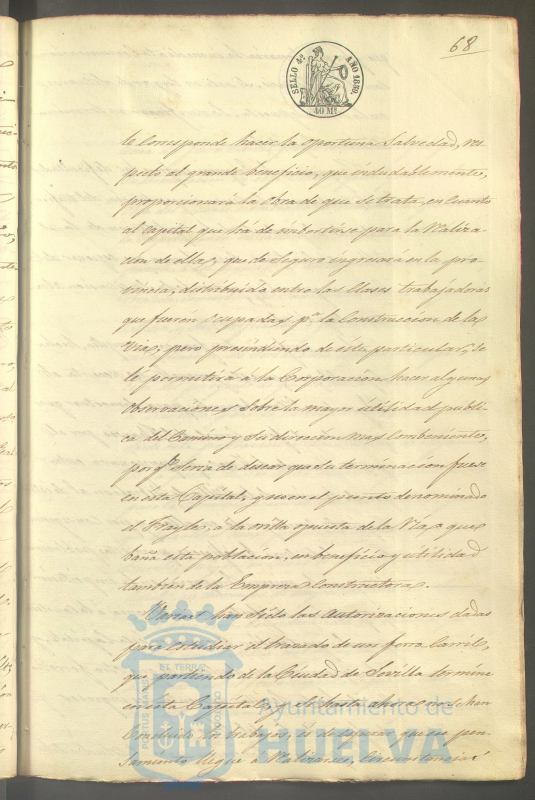 68
SELLO 4º AÑO 1859.
40 Ms
le Corresponde hacer la oportuna Salvedad, res-
pecto al grande beneficio, que indudablemente,
proporcionará la obra de que se trata, en cuanto
al Capital que há de imbertirse para la Realiza-
cion de ella, y que de Seguro ingresará en la pro-
vincia, distribuido entre las Clases trabajadoras
que fueren Ocupadas pª la Construccion de la
Via; pero presindiendo de este particular, se
le permitirá á la Corporacion hacer algunas
Observaciones sobre la mayor utilidad publi-
ca del Camino y su direccion mas Combeniente,
por qe. Seria de desear que su terminacion fuese
en esta Capital, y no en el punto denominado
el Frayle, á la orilla opuesta de la Ria, que
baña esta poblacion, en beneficio y utilidad
tambien de la Empresa Constructora.
Varias han sido las autorizaciones dadas
para estudiar el trazado de un ferro Carril,
que partiendo de la Ciudad de Sevilla termine
en esta Capital, y si hasta ahora no se han
Concluido trabajos, es de esperar que su pen-
samiento llegue á Realizarse, Circunstancia
PORTUS MARIS ET TERRAE CUSTODIA
Ayuntamiento de
HUELVA